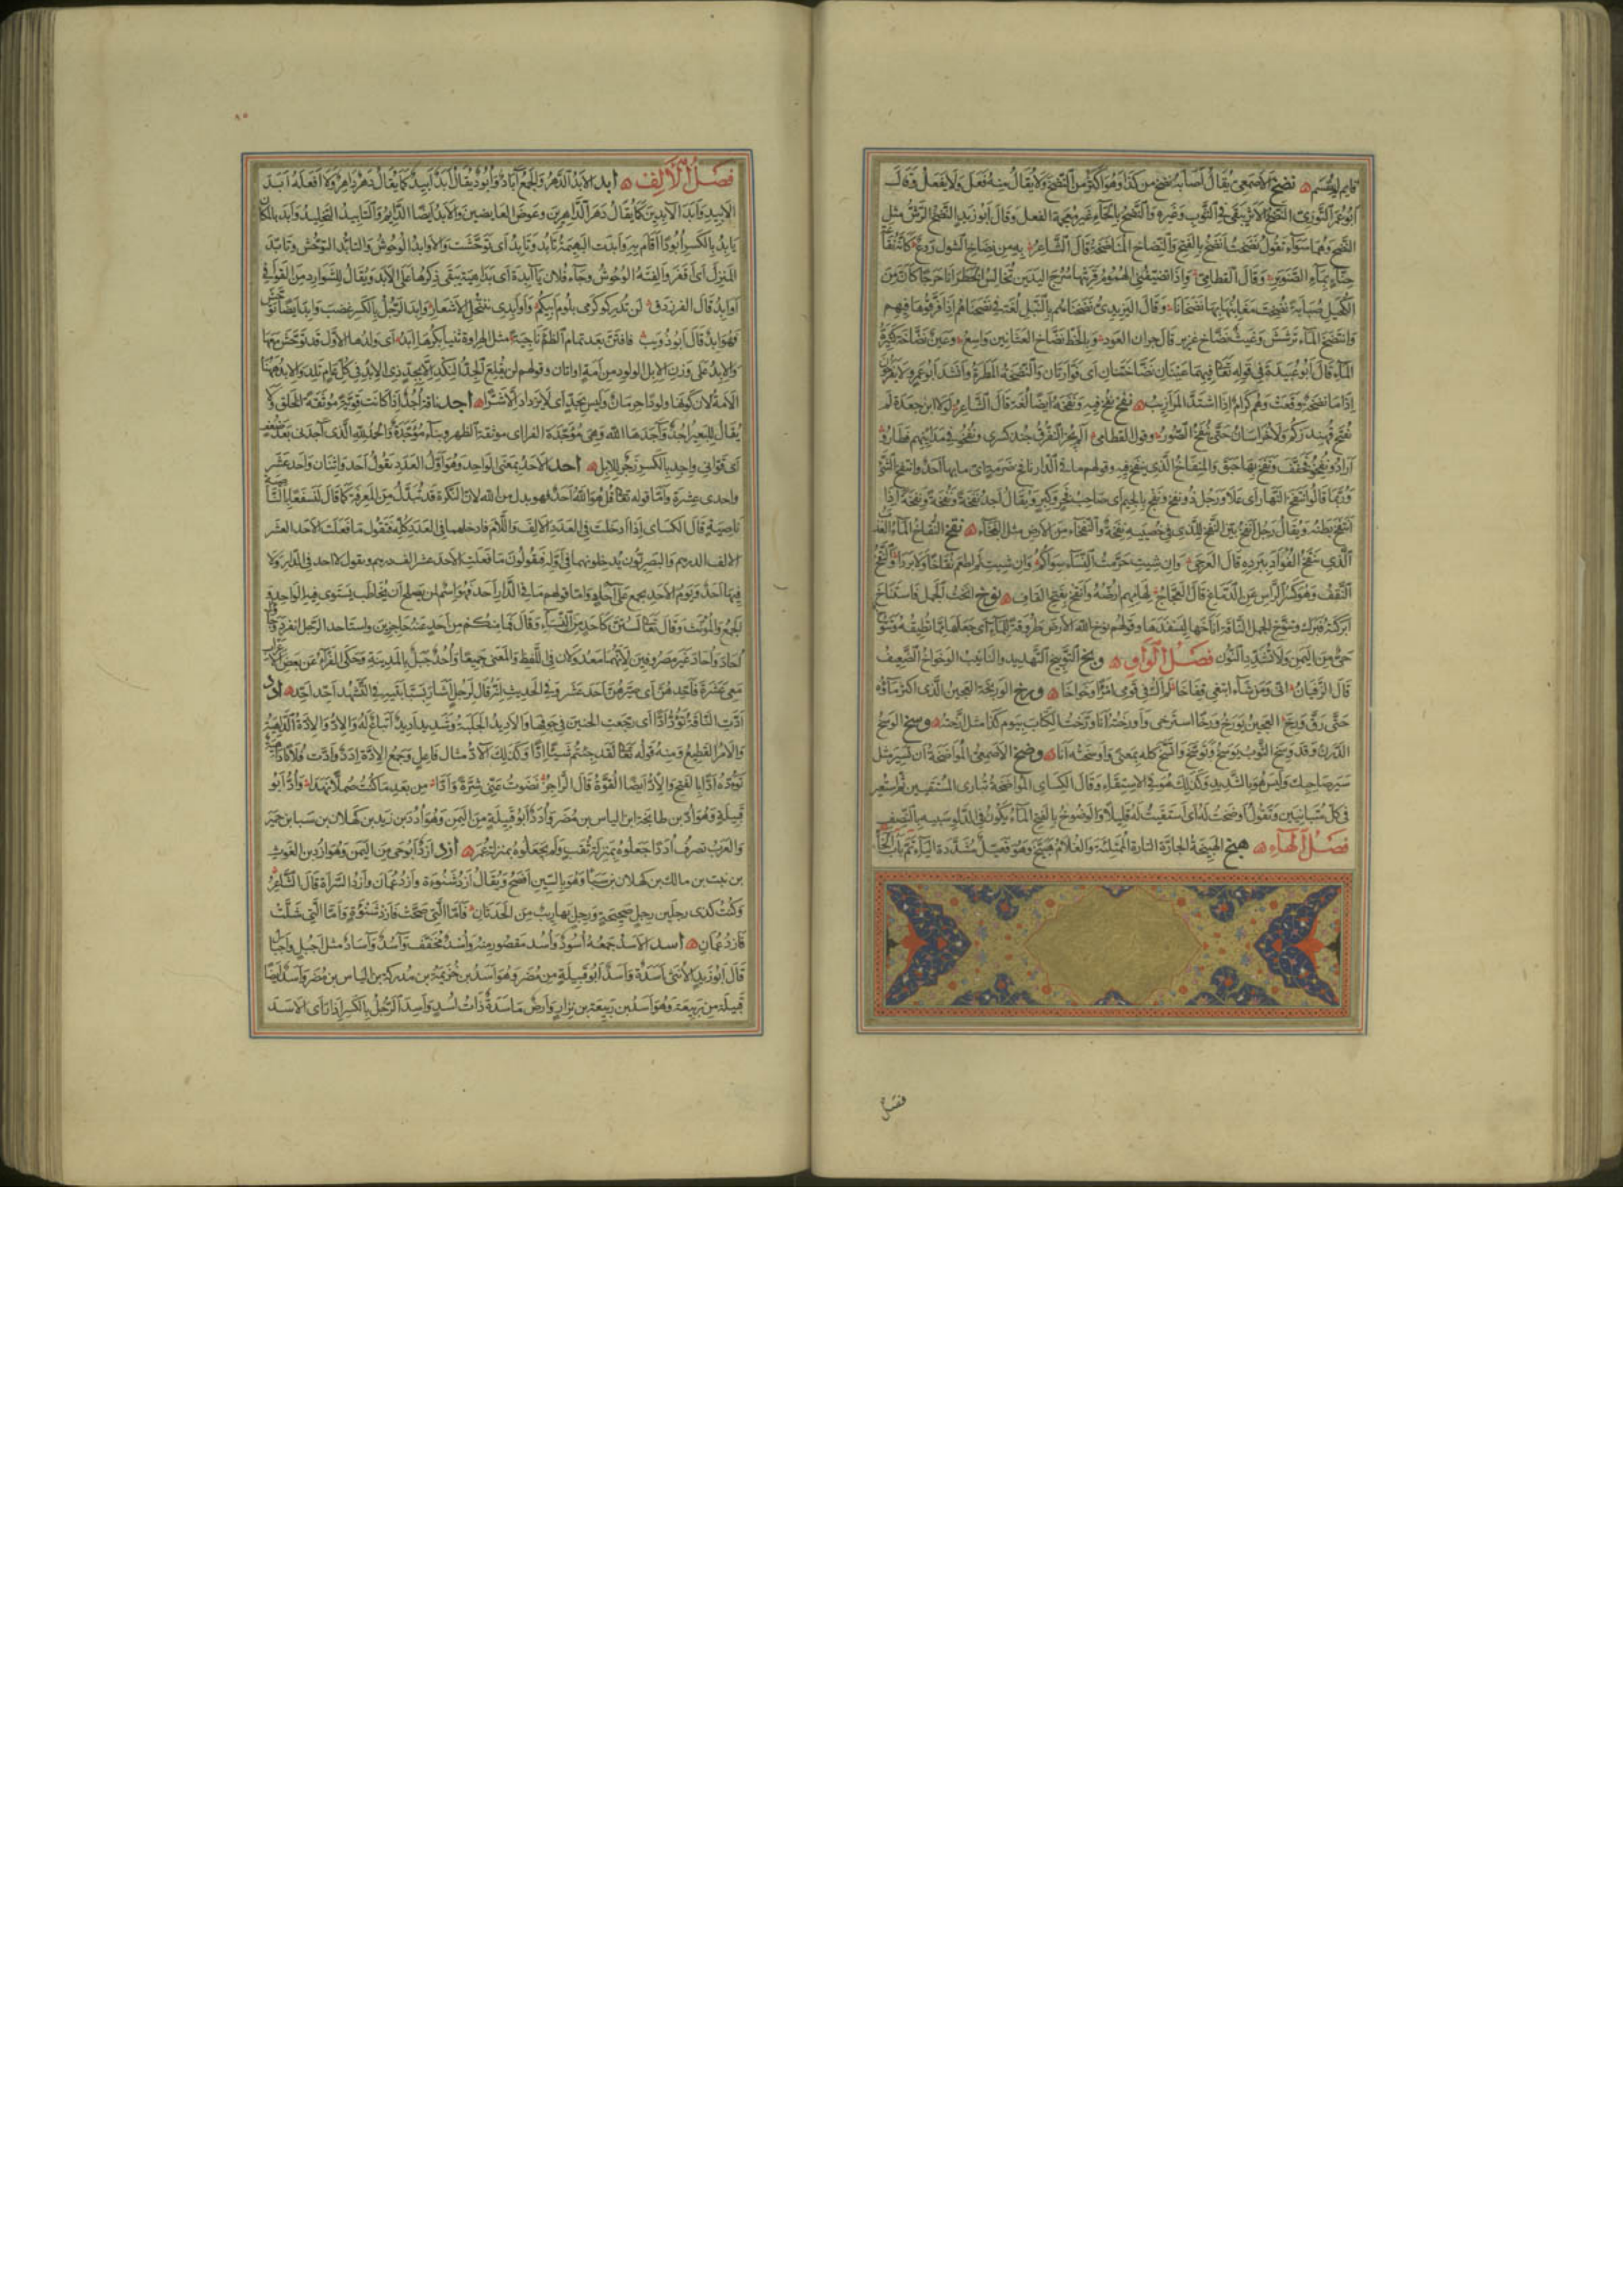 قايم لم يقسم نضخ الاصمعى يقال اصابه نضخ من كذا وهو اكثر من النضح ولا يقال منه فعل ولا يفعل وقال
ابو عمر التوزى النضخ الاثر يبقى فى الثوب وغيره والنضح بالحاء غير معجمة الفعل وقال ابو زيد النضخ الرش مثل
النضح وهما سواء تقول نضخت انضخ بالفتح والنضاخ المناضخة قال الشاعر به من نضاخ الشول ردع كانه نقاعة
حناء بماء الصنوبر وقال القطامى واذا تضيفنى الهموم قريتها سرح اليدين تخالس الخطرانا حرجا كان من
الكحيل صبابة نضخت مغابنها بها نضخانا وقال اليزيدى نضخناهم بالنبل لغة فى نضحناهم اذا فرقوها فيهم
وانتضخ الماء ترشش وغيث نضاخ غزير قال جران العود وبالخط نضاخ العثانين واسع وعين نضاخة كثيرة
الماء قال ابو عبيدة فى قوله تعالى فيهما عينان نضاختان اى فوارتان والنضخة المطرة وانشد ابو عمرو لا يفرحون
اذا ما نضخة وقعت وهم كرام اذا اشتد الموازيب نفخ نفخ فيه ونفخه ايضا لغة قال الشاعر لولا ابن جعدة لم
تفتح قهندزكم ولا خراسان حتى ينفخ الصور وقول القطامى الم يخز التفرق جند كسرى ونفخوا فى مداينهم فطاروا
اراد ونفخوا فخفف ونفخ بها حبق والمنفاخ الذى ينفخ فيه وقولهم ما فى الدار نافخ ضرمة اى ما بها احد وانتفخ الشئ
وربما قالوا انتفخ النهار اى علا ورجل ذو نفخ ونفج بالجيم اى صاحب فخر وكبر ويقال اجد نفخة ونفخة ونفخة اذا
انتفخ بطنه ويقال رجل انفخ بين النفخ للذى فى خصييه نفخة والنفخاء من الارض مثل النبخاء نقخ النقاخ الماء العذب
الذى ينقخ الفواد ببرده قال العرجى وان شيت حرمت النساء سواكم وان شيت لم اطعم نقاخا ولا بردا والنقخ
النقف وهو كسر الراس عن الدماغ قال العجاج لهامهم ارضه وانقخ بفتح القاف نوخ انخت الجمل فاستناخ
ابركته فبرك وتنوخ الجمل الناقة اناخها ليسفدها وقولهم نوخ الله الارض طروقة للماء اى جعلها مما تطيقه وتنوخ
حى من اليمن ولا تشدد النون فصل الواو وبخ التوبيخ التهديد والتانيب الوخواخ الضعيف
قال الزفيان انى ومن شاء ابتغى قفاخا لم اك فى قومى امرا وخواخا ورخ الوريخة العجين الذى اكثر ماؤه
حتى رق وورخ العجين يورخ ورخا استرخى واورخته انا وورخت الكتاب بيوم كذا مثل ارخته وسخ الوسخ
الدرن وقد وسخ الثوب يوسخ وتوسخ واتسخ كله بمعنى واوسخته انا وضخ الاصمعى المواضخة ان تسير مثل
سير صاحبك وليس هو بالشديد وكذلك هو فى الاستقاء وقال الكساى المواضخة تبارى المستقيين ثم استعير
فى كل متباريين وتقول اوضخت له اى استقيت له قليلا والوضوخ بالفتح الماء يكون فى الدلو شبيه بالنصف
فصل الهاء هبخ الهبيخة الجارية التارة الممتلئة والغلام هبيخ وهو فعيل مشددة الياء تم باب الخاء
فصل
فصل الالف ابد الابد الدهر والجمع آباد وابود يقال ابد ابيد كما يقال دهر داهر ولا افعله ابد
الابيد وابد الآبدين كما يقال دهر الداهرين وعوض العايضين والابد ايضا الدايم والتابيد التخليد وابد بالمكان
يابد بالكسر ابودا اقام به وابدت البهيمة تابد وتابد اى توحشت والاوابد الوحوش والتابد التوحش وتابد
المنزل اى اقفر والفته الوحوش وجاء فلان بآبدة اى بداهية يبقى ذكرها على الابد ويقال للشوارد من القوافى
اوابد قال الفرزدق لن تدركوا كرمى بلوم ابيكم واوابدى بتنحل الاشعار وابد الرجل بالكسر غضب وابد ايضا توحش
فهو ابد قال ابو ذويب فافتن بعد تمام الظمء ناجية مثل الهراوة ثنيا بكرها ابد اى ولدها الاول قد توحش معها
والابد على وزن الابل الولود من امة او اتان وقولهم لن يقلع الجد النكد الا بجد ذى الابد فى كل عام تلد والابد ههنا
الامة لان كونها ولودا حرمان وليس بجد اى لا يزداد الا شرا اجد ناقة اجد اذا كانت قوية موثقة الخلق ولا
يقال للبعير اجد وآجدها الله فهى مؤجدة القرا اى موثقة الظهر وبناء مؤجد والحمد لله الذى آجدنى بعد ضعف
اى قوانى واجد بالكسر زجر للابل احد الاحد بمعنى الواحد وهو اول العدد تقول احد واثنان واحد عشر
واحدى عشرة واما قوله تعالى قل هو الله احد فهو بدل من الله لان النكرة قد تبدل من المعرفة كما قال لنسفعا بالناصية
ناصية قال الكساى اذا ادخلت فى العدد الالف واللام فادخلهما فى العدد كله فتقول ما فعلت الاحد العشر
الالف الدرهم والبصريون يدخلونهما فى اوله فيقولون ما فعلت الاحد عشر الف درهم وتقول لا احد فى الدار ولا
فيها احد ويوم الاحد يجمع على آحاد واما قولهم ما فى الدار احد فهو اسم لمن يصلح ان يخاطب يستوى فيه الواحد و
الجمع والمونث وقال تعالى لستن كاحد من النساء وقال فما منكم من احد عنه حاجزين واستاحد الرجل انفرد وجاؤا
احاد احاد غير مصروفين لانهما معدولان فى اللفظ والمعنى جميعا واحد جبل بالمدينة وحكى الفراء عن بعض الاعراب
معى عشرة فاحدهن اى صيرهن احد عشر وفى الحديث انه قال لرجل اشار بسبابتيه فى التشهد احد احد ادد
ادت الناقة تؤد ادا اى رجعت الحنين فى جوفها والاديد الجلبة وشديد اديد اتباع له والاد والادة الداهية
والامر الفظيع ومنه قوله تعالى لقد جئتم شيئا ادا وكذلك الآد مثال فاعل وجمع الادة ادد وادت فلانا داهية
تؤده ادا بالفتح والاد ايضا القوة قال الراجز نضوت عنى شرة وادا من بعد ما كنت صملا نهدا واد ابو
قبيلة وهو اد بن طابخة بن الياس بن مضر وادد ابو قبيلة من اليمن وهو ادد بن زيد بن كهلان بن سبا بن حمير
والعرب تصرف ادد جعلوه بمنزلة ثقب ولم يجعلوه بمنزلة عمر ازد ازد ابو حى من اليمن وهو ازد بن الغوث
بن نبت بن مالك بن كهلان بن سبا وهو بالسين افصح ويقال ازد شنوءة وازد عمان وازد السراة قال الشاعر
وكنت كذى رجلين رجل صحيحة ورجل بها ريب من الحدثان فاما التى صحت فازد شنوءة واما التى شلت
فازد عمان اسد الاسد جمعه اسود واسد مقصور منه واسد مخفف وآسد وآساد مثل اجبل واجبال
قال ابو زيد الانثى اسدة واسد ابو قبيلة من مضر وهو اسد بن خزيمة بن مدركة بن الياس بن مضر واسد ايضا
قبيلة من ربيعة وهو اسد بن ربيعة بن نزار وارض ماسدة ذات اسد واسد الرجل بالكسر اذا راى الاسد